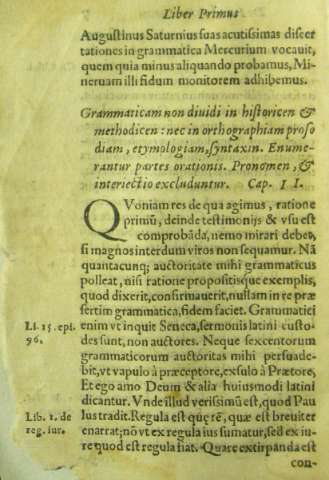 Liber Primus
Augustinus Saturnius suas acutissimas disser
tationes in grammatica Mercurium vocauit,
quem quia minus aliquando probamus, Mi-
neruam illi fidum monitorem adhibemus.
Grammaticam non diuidi in historicen &
methodicen: nec in orthographiam proso
diam, etymologiam, syntaxin. Enume-
rantur partes orationis. Pronomen, &
interiectio excluduntur. Cap. II.
QVoniam res de qua agimus, ratione
primũ, deinde testimonijs & vsu est
comprobãda, nemo mirari debet,
si magnos interdum viros non sequamur. Nã
quantacunq; auctoritate mihi grammaticus
polleat, nisi ratione propositisque exemplis,
quod dixerit, confirmauerit, nullam in re præ
sertim grammatica, fidem faciet. Grammatici
Li. 15. epi.
96.
enim vt inquit Seneca, sermonis latini custo-
des sunt, non auctores. Neque sexcentorum
grammaticorum auctoritas mihi persuade-
bit, vt vapulo à præceptore, exsulo à Prætore,
Et ego amo Deum & alia huiusmodi latini
dicantur. Vnde illud verissimũ est, quod Pau
Lib. 1. de
reg. iur.
lus tradit. Regula est quę rẽ, quæ est breuiter
enarrat; nõ vt ex regula ius sumatur, sed ex iu-
re quod est regula fiat. Quare extirpanda est
con-